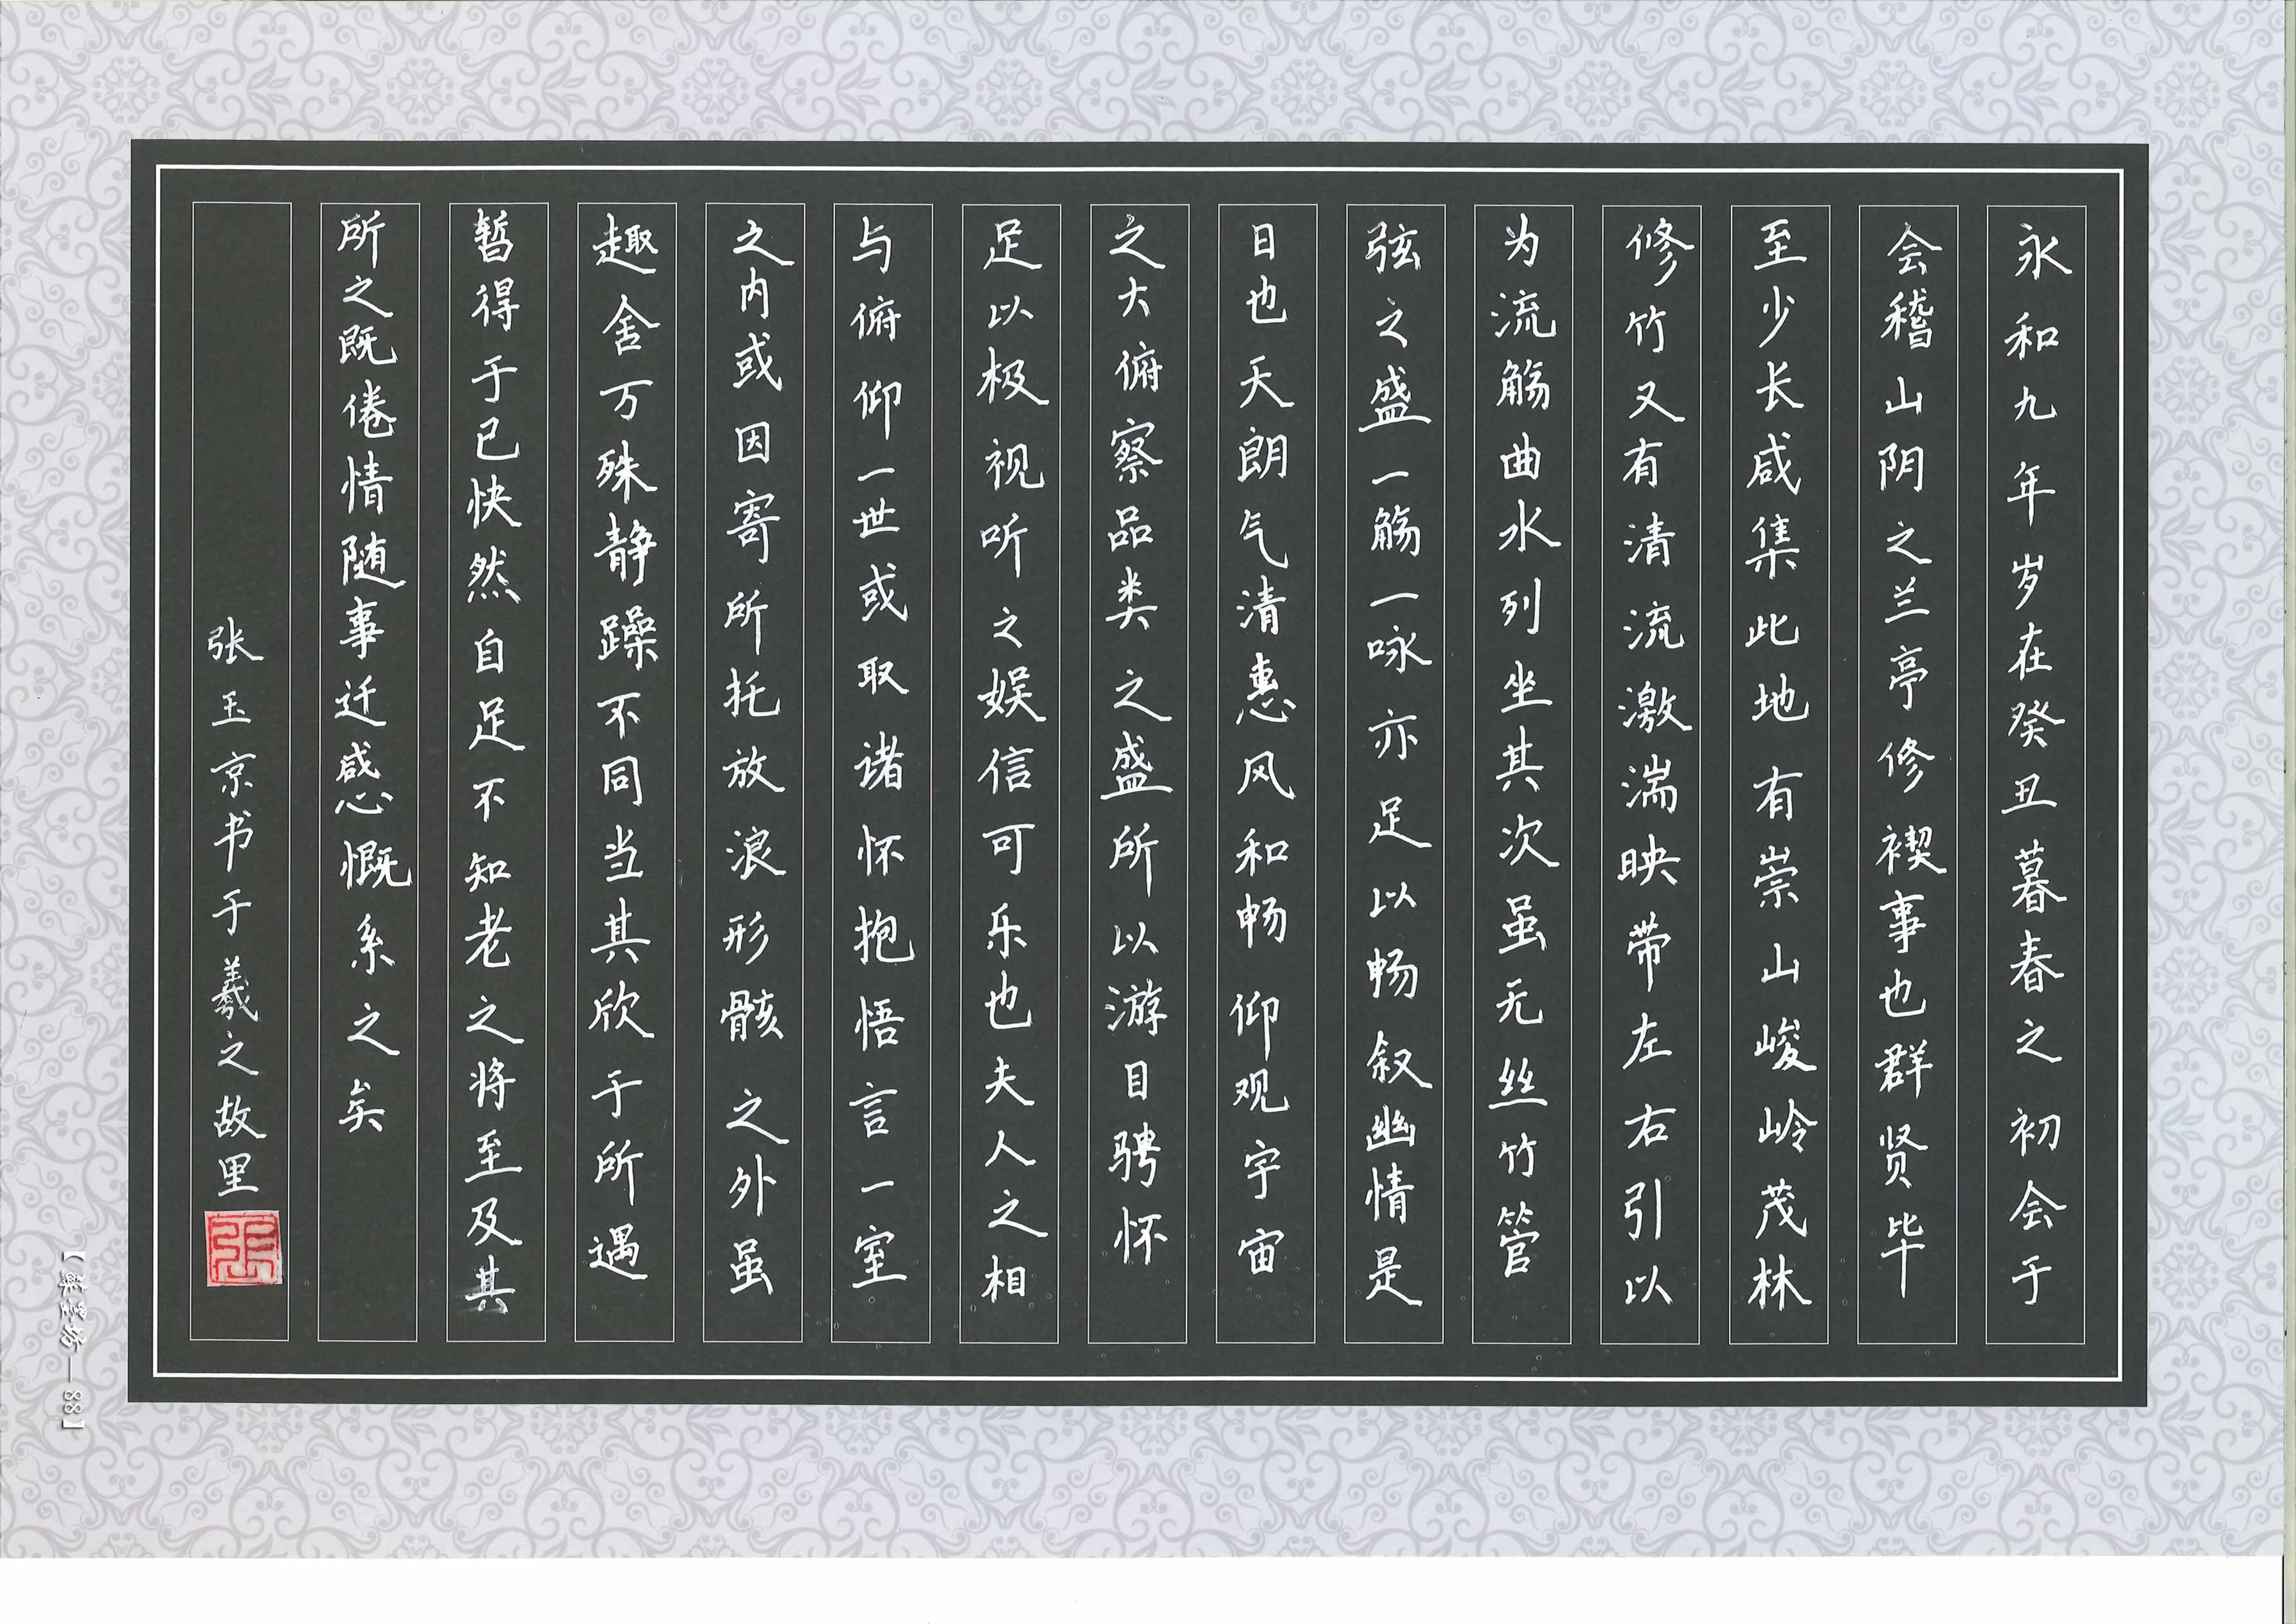 永和九年岁在癸丑暮春之初会于
会稽山阴之兰亭修禊事也群贤毕
至少长咸集此地有崇山峻岭茂林
修竹又有清流激湍映带左右引以
为流觞曲水列坐其次虽无丝竹管
弦之盛一觞一咏亦足以畅叙幽情是
日也天朗气清惠风和畅仰观宇宙
之大俯察品类之盛所以游目骋怀
足以极视听之娱信可乐也夫人之相
与俯仰一世或取诸怀抱悟言一室
之内或因寄所托放浪形骸之外虽
趣舍万殊静躁不同当其欣于所遇
暂得于己快然自足不知老之将至及其
所之既倦情随事迁感慨系之矣
张玉京书于羲之故里
張